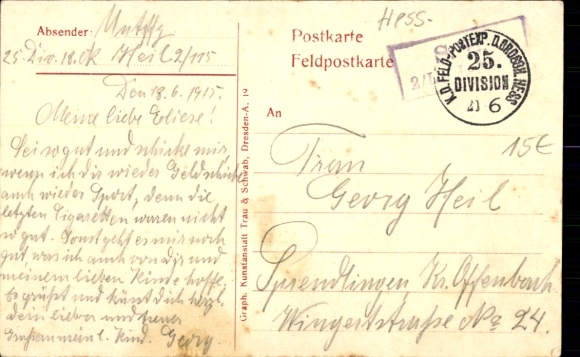 Absender: Untffz
25. Div. 18. AK Heil 2/115
Den 18.6.1915.
Meine liebe Eliese!
Sei so gut und schicke mir,
wenn ich dir wieder Geld schicke
auch wieder Sport, denn die
letzten Cigaretten waren nicht
so gut. Sonst geht es mir noch
gut was ich auch von dir und
meinem lieben Kinde hoffe.
Es grüßt und küßt dich herzl.
dein lieber und treuer
Georg.
Grüße mein l. Kind.
Graph. Kunstanstalt Trau & Schwab, Dresden-A. 19
HESS-
Postkarte
Feldpostkarte
K.D. FELD-POSTEXP. D. GROSSH. HESS
25.
DIVISION
21 6
15€
An
Frau
Georg Heil
Sprendlingen Kr. Offenbach
Wingertstraße No 24.